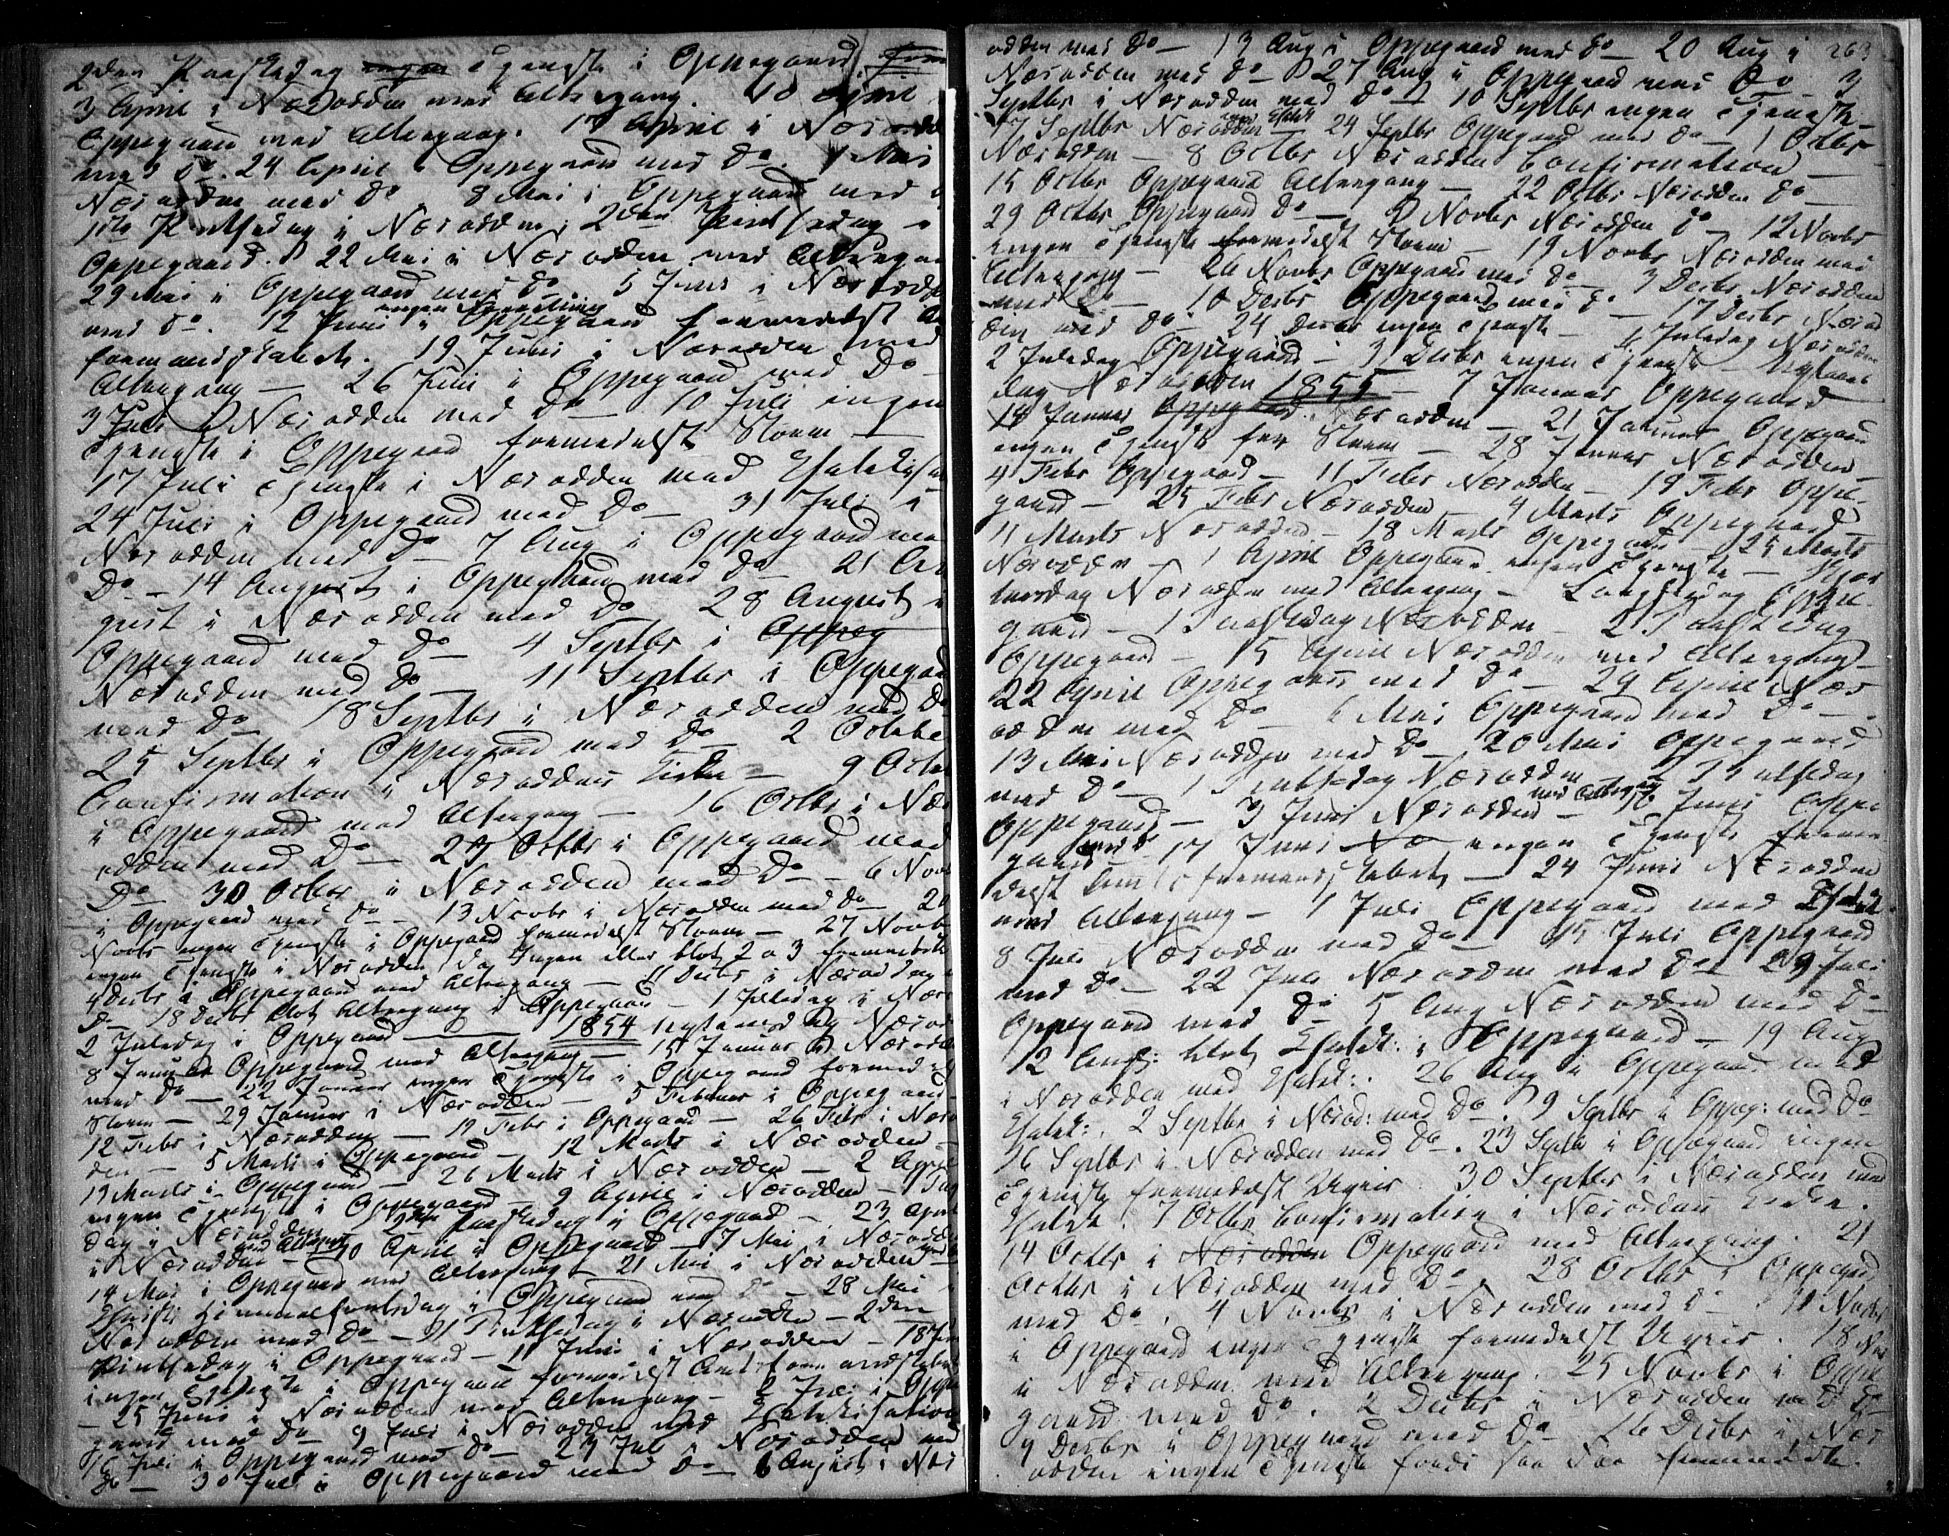 2den Paaskedag Tjeneste i Oppegaard.
3 April i Næsodden med Altergang. 10 April
Oppegaard med Altergang. 17 April i Næsodd
med Do. 24 April i Oppegaard med Do. 1 Mai
Næsodden med Do 8 Mai i Oppegaard med
1ste Pintsedag i Næsodden, 2den Pintsedag i
Oppegaard. 22 Mai i Næsodden med Altergan
29 Mai i Oppegaard med Do 5 Juni i Næsodd
med Do. 12 Juni ingen i Oppegaard formedelst
formandskabet. 19 Juni i Næsodden med
Altergang — 26 Juni i Oppegaard med Do —
3 Juli i Næsodden med Do — 10 Juli ingen
Tjeneste i Oppegaard formedelst Storm —
17 Juli Tjeneste i Næsodden med
24 Juli i Oppegaard med Do — 31 Juli i
Næsodden med Do 7 Aug i Oppegaard med
Do — 14 August i Oppegaard med Do 21 Au
gust i Næsodden med Do 28 August i
Oppegaard med Do — 4 Septbr i Oppeg
Næsodden med Do — 11 Septbr i Oppegaa
med Do — 18 Septbr i Næsodden med Do
25 Septbr i Oppegaard med Do — 2 Octobe
Confirmation i Næsoddens Kirke — 9 Octb
i Oppegaard med Altergang — 16 Octbr i Næs
odden med Do — 23 Octbr i Oppegaard med
Do 30 Octbr i Næsodden med Do — 6 Nov
i Oppegaard med Do — 13 Novbr i Næsodden med Do — 20
Novbr ingen Tjeneste i Oppegaard formedelst Storm — 27 Novb
ingen Tjeneste i Næsodden da Ingen eller blot 2 a 3 fremmødte
4 Decbr i Oppegaard med Altergang — 11 Decbr i Næsodden
Do — 18 Decbr blot Altergang i Oppegaard — 1 Juledag i Næso
2 Juledag i Oppegaard — 1854 Nytaarsdag Næsod
8 Januar Oppegaard med Altergang — 15 Januar Næsodd
med Do — 22 Januar ingen Tjeneste i Oppegaard formedelst
Storm — 29 Januar i Næsodden — 5 Februar i Oppegaard
12 Febr i Næsodden — 19 Febr i Oppegaard — 26 Febr i Næsod
den — 5 Marts i Oppegaard — 12 Marts i Næsodden —
19 Marts i Oppegaard — 26 Marts i Næsodden — 2 April
ingen Tjeneste i Oppegaard — 9 April i Næsodden —
dag i Næsodden — 2den Paaskedag i Oppegaard — 23 April
i Næsodden med Altergang — 30 April i Oppegaard — 7 Mai i Næsodden
14 Mai i Oppegaard med Altergang — 21 Mai i Næsodden
Christi Himmelfartsdag i Oppegaard med Do — 28 Mai i
Næsodden med Do — 1 Pintsedag i Næsodden — 2den
Pintsedag i Oppegaard — 11 Juni i Næsodden — 18 Juni
ingen Tjeneste i Oppegaard formedelst Amtsformandskabet
— 25 Juni i Næsodden med Altergang — 2 Juli i Oppe
gaard med Do — 9 Juli i Næsodden med Katekisation
16 Juli i Oppegaard med Do — 23 Juli i Næsodden med
Do — 30 Juli i Oppegaard med Do — 6 August i Næs
263
odden med Do — 13 Aug i Oppegaard med Do — 20 Aug i
Næsodden med Do — 27 Aug i Oppegaard med Do 3
Septbr i Næsodden med Do — 10 Septbr ingen Tjeneste —
17 Septbr Næsodden — 24 Septbr Oppegaard med Do — 1 Octbr
Næsodden — 8 Octbr Næsodden Confirmation —
15 Octbr Oppegaard Altergang — 22 Octbr Næsodden Do —
29 Octbr Oppegaard Do — 5 Novbr Næsodden Do — 12 Novbr
ingen Tjeneste formedelst Storm — 19 Novbr Næsodden med
Altergang — 26 Novbr Oppegaard med Do — 3 Decbr Næsodden
med Do — 10 Decbr Oppegaard med Do — 17 Decbr Næsod
den med Do — 24 Decbr ingen Tjeneste — 1 Juledag Næsodden
2 Juledag Oppegaard — 31 Decbr ingen Tjeneste — Nytaars
dag Næsodden 1855 — 7 Januar Oppegaard
14 Januar Oppegaard Næsodden — 21 Januar Oppegaard
ingen Tjeneste for Storm — 28 Januar Næsodden
4 Febr Oppegaard — 11 Febr Næsodden — 18 Febr Oppe-
gaard — 25 Febr Næsodden — 4 Marts Oppegaard —
11 Marts Næsodden — 18 Marts Oppegaard — 25 Marts
Næsodden — 1 April Oppegaard ingen Tjeneste — Skjær
torsdag Næsodden med Altergang — Langfredag Oppe-
gaard — 1 Paaskedag Næsodden — 2 Paaskedag
Oppegaard — 15 April Næsodden med Altergang —
22 April Oppegaard med Do — 29 April Næs
odden med Do — 6 Mai Oppegaard med Do —
13 Mai Næsodden med Do — 20 Mai Oppegaard
med Do — 1 Pintsedag Næsodden — 2 Pintsedag
Oppegaard — 3 Juni Næsodden med Altergang — 10 Juni Oppe
gaard med Do — 17 Juni ingen Tjeneste forme
delst Amtsformandskabet — 24 Juni Næsodden
med Altergang — 1 Juli Oppegaard med
8 Juli Næsodden med Do — 15 Juli Oppegaard
med Do — 22 Juli Næsodden med Do — 29 Juli
Oppegaard med Do 5 Aug Næsodden med Do
12 Aug: blot i Oppegaard — 19 Aug
i Næsodden med 26 Aug i Oppegaard med
2 Septbr i Næsod: med Do. 9 Septbr i Oppeg: med Do
16 Septbr i Næsodden med Do. 23 Septb i Oppegaard ingen
Tjeneste formedelst Uveir. 30 Septbr i Næsodden med
7 Octbr Confirmation i Næsoddens Kirke.
14 Octbr i Næsodden Oppegaard med Altergang. 21
Octbr i Næsodden med Do. 28 Octbr i Oppegaard
med Do. 4 Novbr i Næsodden med Do 11 Novbr
i Oppegaard ingen Tjeneste formedelst Uveir. 18 Nov
i Næsodden med Altergang. 25 Novbr i Oppe
gaard med Do. 2 Decbr i Næsodden med Do
9 Decbr i Oppegaard med Do 16 Decbr i Næs
odden ingen Tjeneste fordi saa Faa fremmødte.